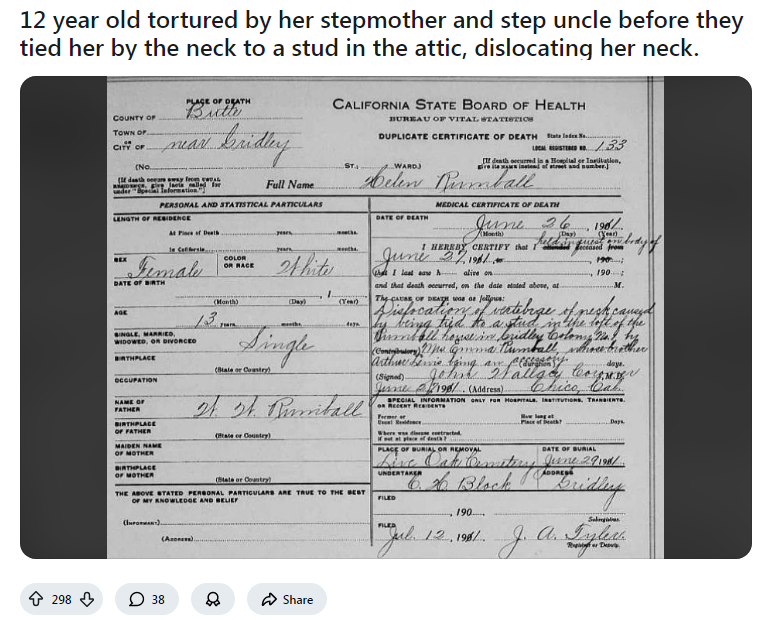 12 year old tortured by her stepmother and step uncle before they
tied her by the neck to a stud in the attic, dislocating her neck.
CALIFORNIA STATE BOARD OF HEALTH
BUREAU OF VITAL STATISTICS
DUPLICATE CERTIFICATE OF DEATH State Index No.
LOCAL REGISTERED No. 133
PLACE OF DEATH
COUNTY OF Butte
TOWN OF
OR
CITY OF near Gridley
(No. ST.; WARD)
[If death occurred in a Hospital or Institution,
give its NAME instead of street and number.]
[If death occurs away from USUAL
RESIDENCE, give facts called for
under "Special Information."]
Full Name Helen Rumball
PERSONAL AND STATISTICAL PARTICULARS
LENGTH OF RESIDENCE
At Place of Death years, months.
In California years, months.
SEX Female
COLOR
OR RACE White
DATE OF BIRTH
(Month) (Day) (Year)
AGE 13 years, months, days.
SINGLE, MARRIED,
WIDOWED, OR DIVORCED Single
BIRTHPLACE
(State or Country)
OCCUPATION
NAME OF
FATHER W. W. Rumball
BIRTHPLACE
OF FATHER
(State or Country)
MAIDEN NAME
OF MOTHER
BIRTHPLACE
OF MOTHER
(State or Country)
THE ABOVE STATED PERSONAL PARTICULARS ARE TRUE TO THE BEST
OF MY KNOWLEDGE AND BELIEF
(INFORMANT)
(ADDRESS)
MEDICAL CERTIFICATE OF DEATH
DATE OF DEATH
June 26, 191
(Month) (Day) (Year)
I HEREBY CERTIFY that I held inquest on body of
attended deceased from
June 27, 191 190 ;
that I last saw h alive on 190 ;
and that death occurred, on the date stated above, at M.
The CAUSE OF DEATH was as follows:
Dislocation of vertebrae of neck caused
by being tied to a stud in the loft of the
Rumball house in Gridley Colony No. 9, by
(Contributory) Mrs Emma Rumball, whose brother
Arthur Lewis being an accessory.
(Duration) days.
(Signed) John Wallace Coroner M.D.
June 191 (Address) Chico, Cal.
SPECIAL INFORMATION ONLY FOR HOSPITALS, INSTITUTIONS, TRANSIENTS,
OR RECENT RESIDENTS
Former or
Usual Residence
How long at
Place of Death? Days.
Where was disease contracted,
if not at place of death?
PLACE OF BURIAL OR REMOVAL
Live Oak Cemetery
DATE OF BURIAL
June 29 191
UNDERTAKER
Block
ADDRESS
Gridley
FILED
, 190
Subregistrar.
FILED
Jul. 12, 191 J. A. Tyler
Registrar or Deputy.
298
38
Share